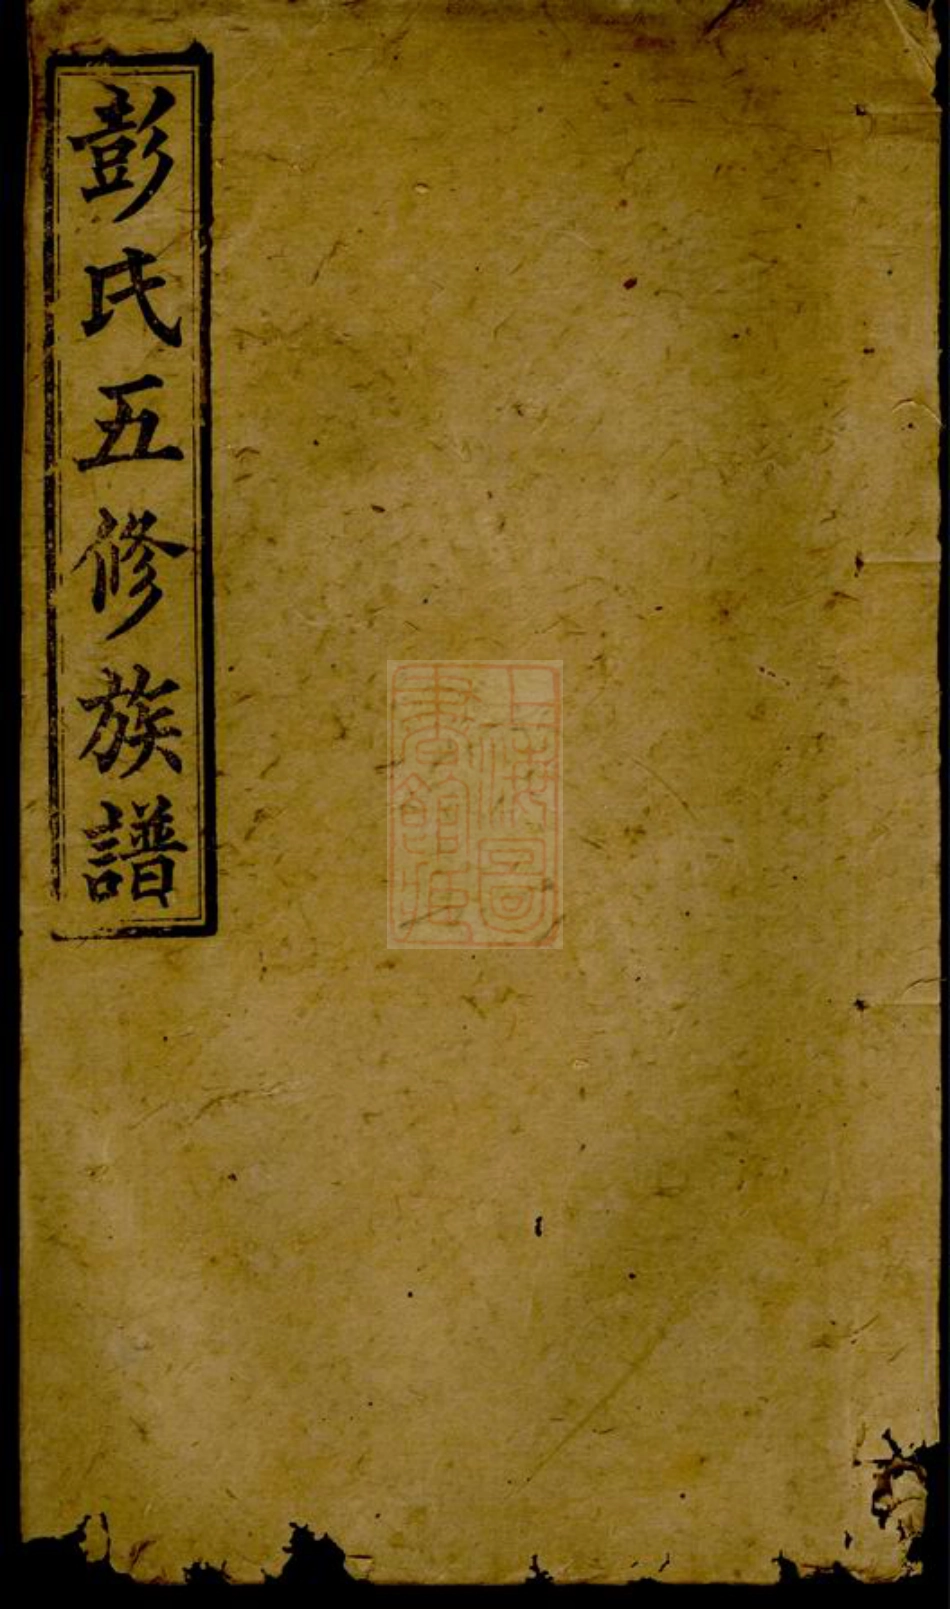 彭氏五修族譜
上海圖
書館藏